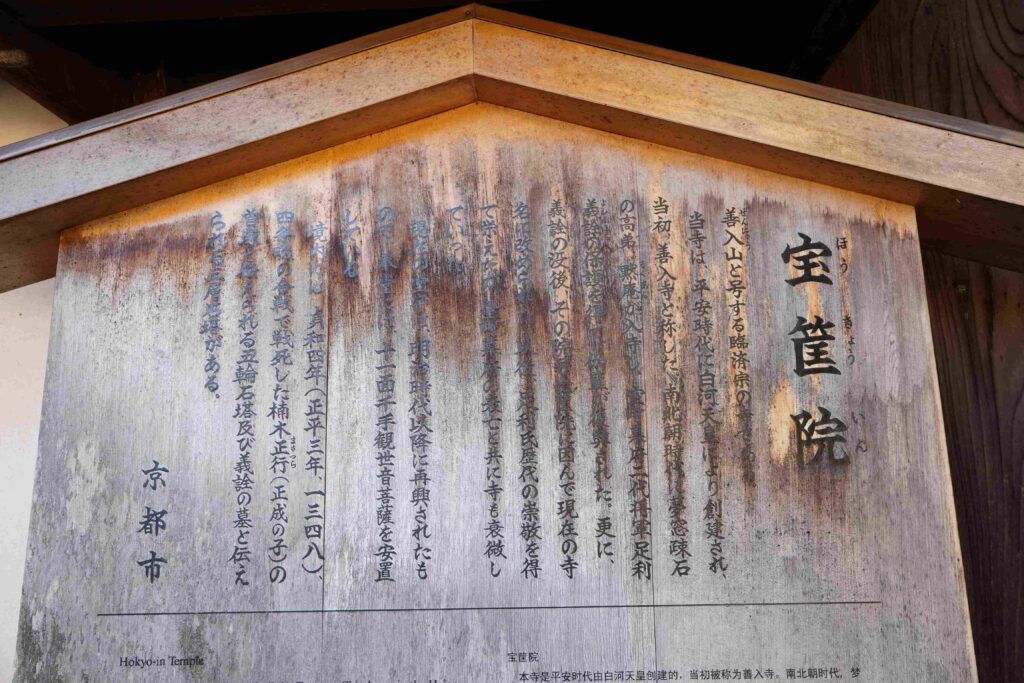 宝筐院
ほうきょういん
善入山と号する臨済宗の寺である。
当寺は、平安時代に白河天皇により創建され、
当初、善入寺と称した。南北朝時代、夢窓疎石
の高弟、黙庵が入寺し、二代将軍足利
義詮の保護を得て復興された。更に、
義詮の没後、その院号に因んで現在の寺
名に改められた。足利氏歴代の崇敬を得
て栄えたが、室町幕府の衰亡と共に寺も衰微し
ていった。
現在の堂宇は、明治時代以降に再興されたも
ので、本堂には、十一面千手観世音菩薩を安置
している。
貞和四年（正平三年、一三四八）、
四条畷の合戦で戦死した楠木正行（正成の子）の
まさつら
首塚と伝えられる五輪石塔及び義詮の墓と伝え
られる三層石塔がある。
京都市
Hokyo-in Temple
宝筐院
本寺是平安时代由白河天皇创建的，当初被称为善入寺。南北朝时代，梦